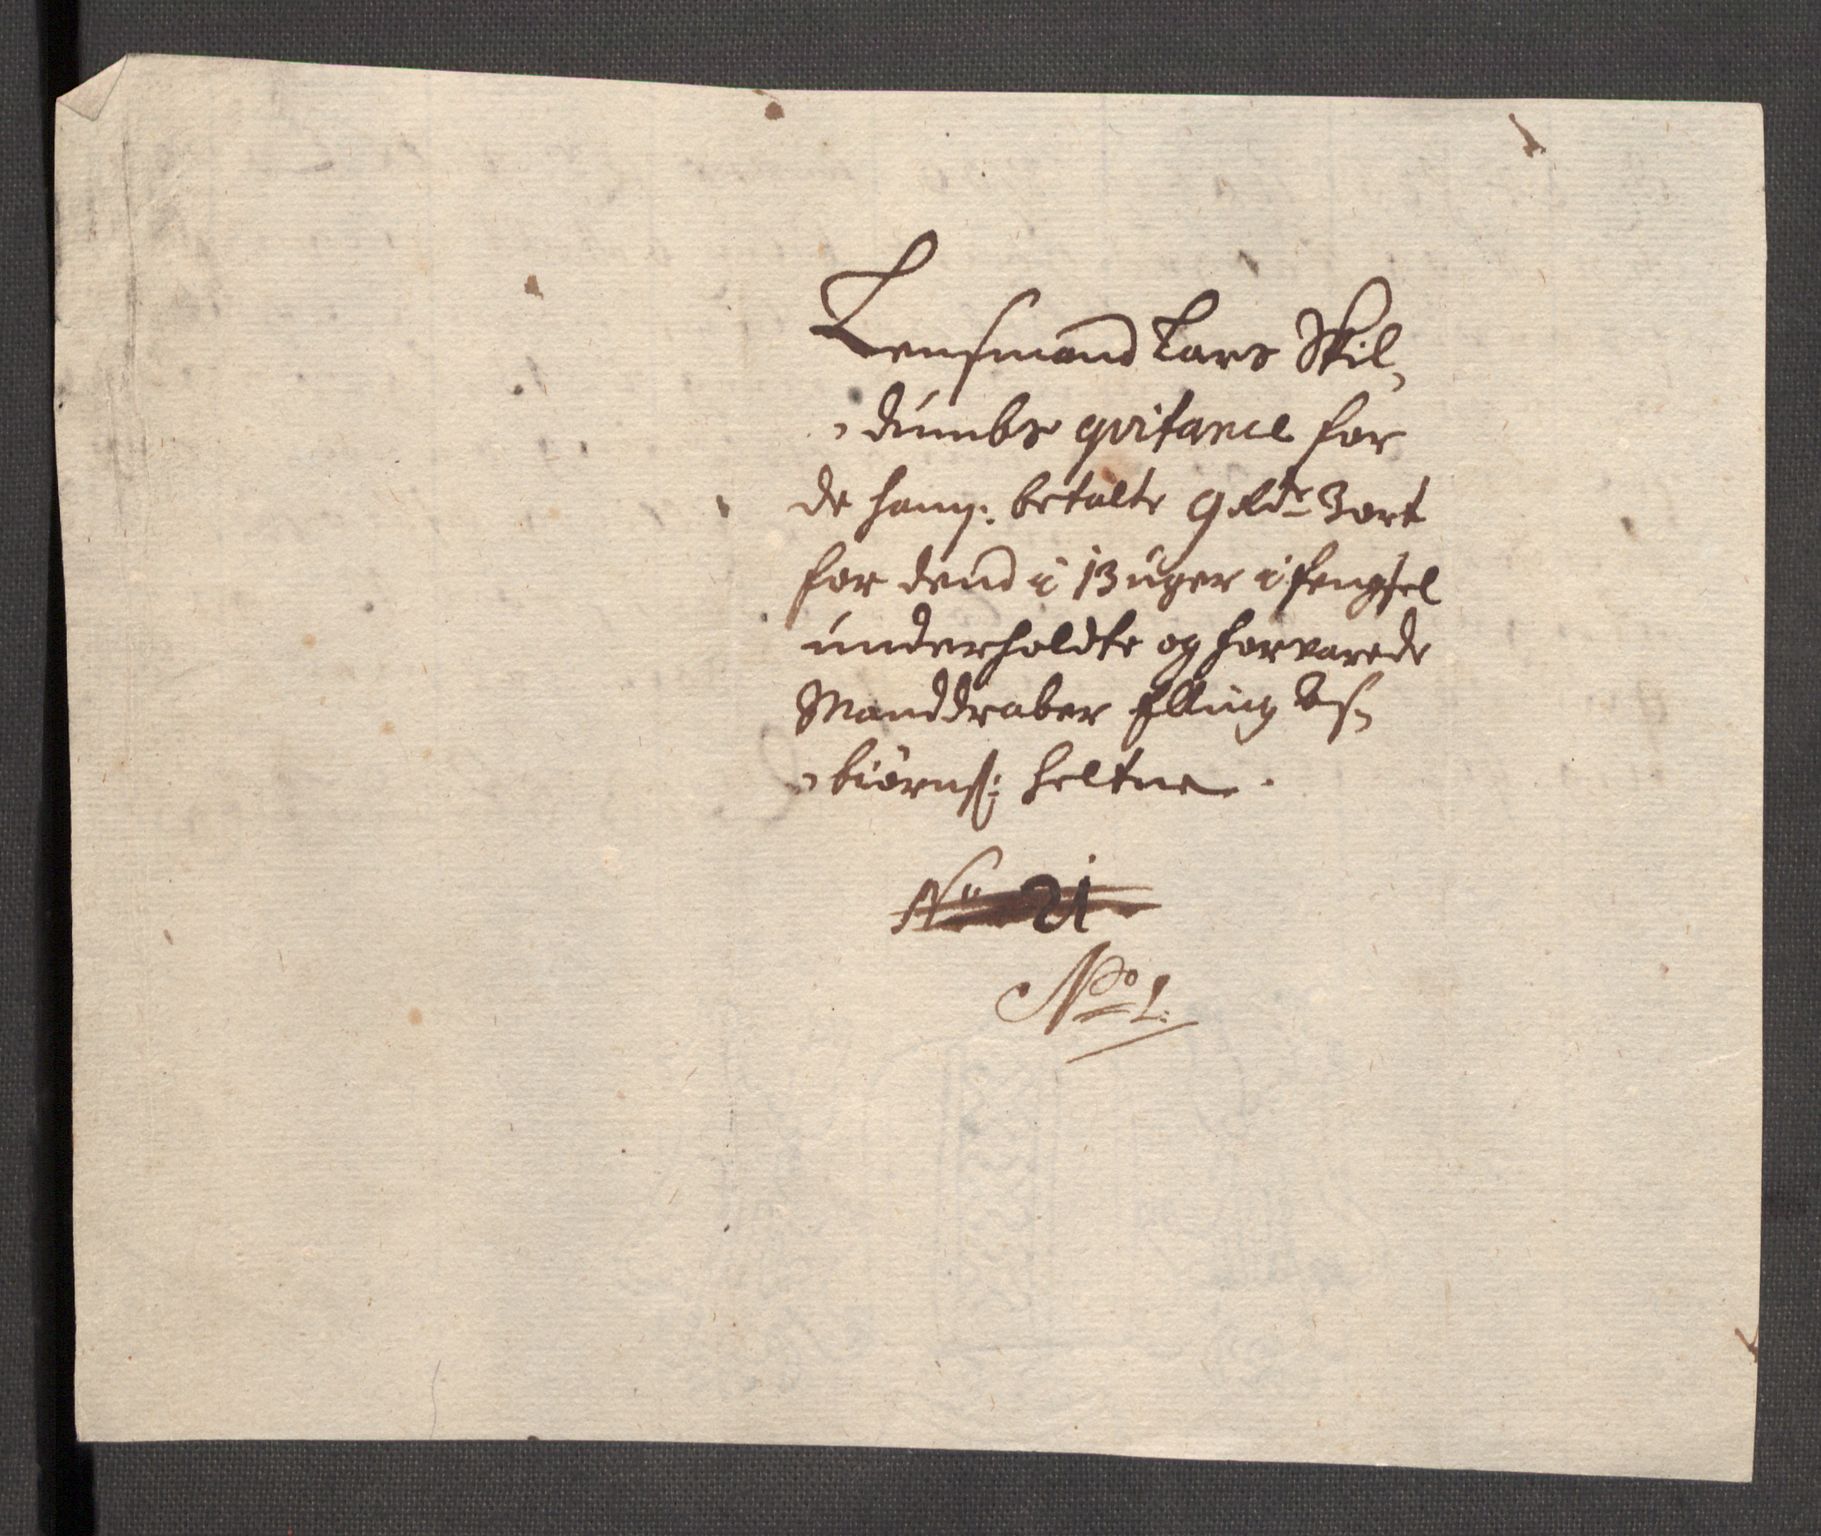 Lensmand Lars Skil-
-dumbs qvitance for
de ham: betalte 9 Rdr 3 ort
for dend i 13 uger i fengsel
underholdte og forvarede
Manddraber Elling As-
-biørns: Heltne.
No 21
No 1.